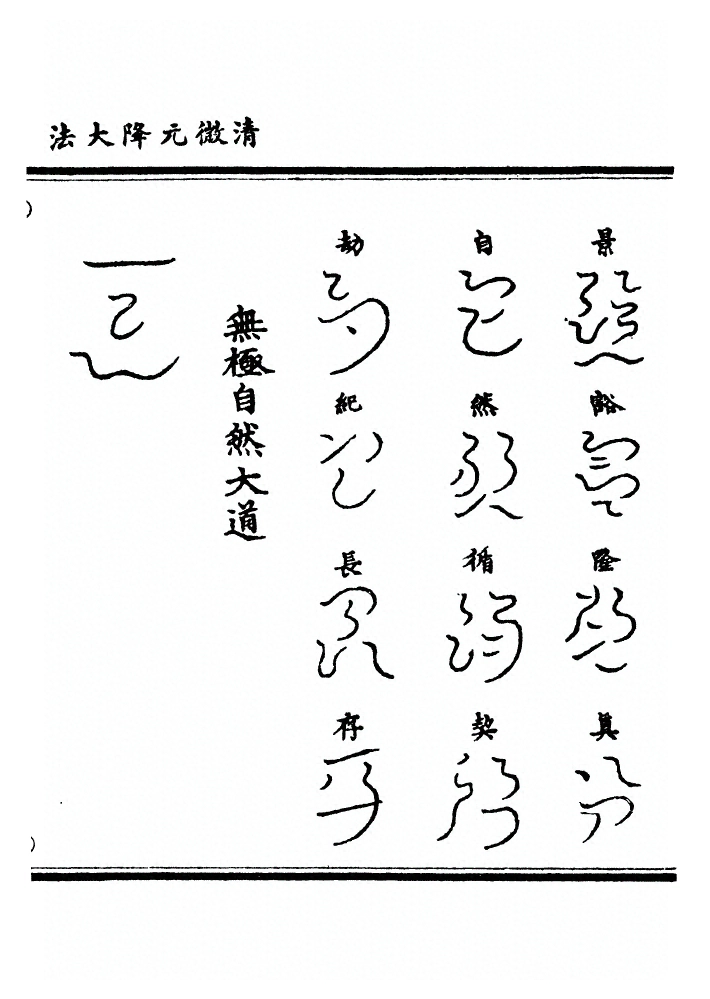 清微元降大法
景谿隆真
自然循契
劫紀長存
無極自然大道